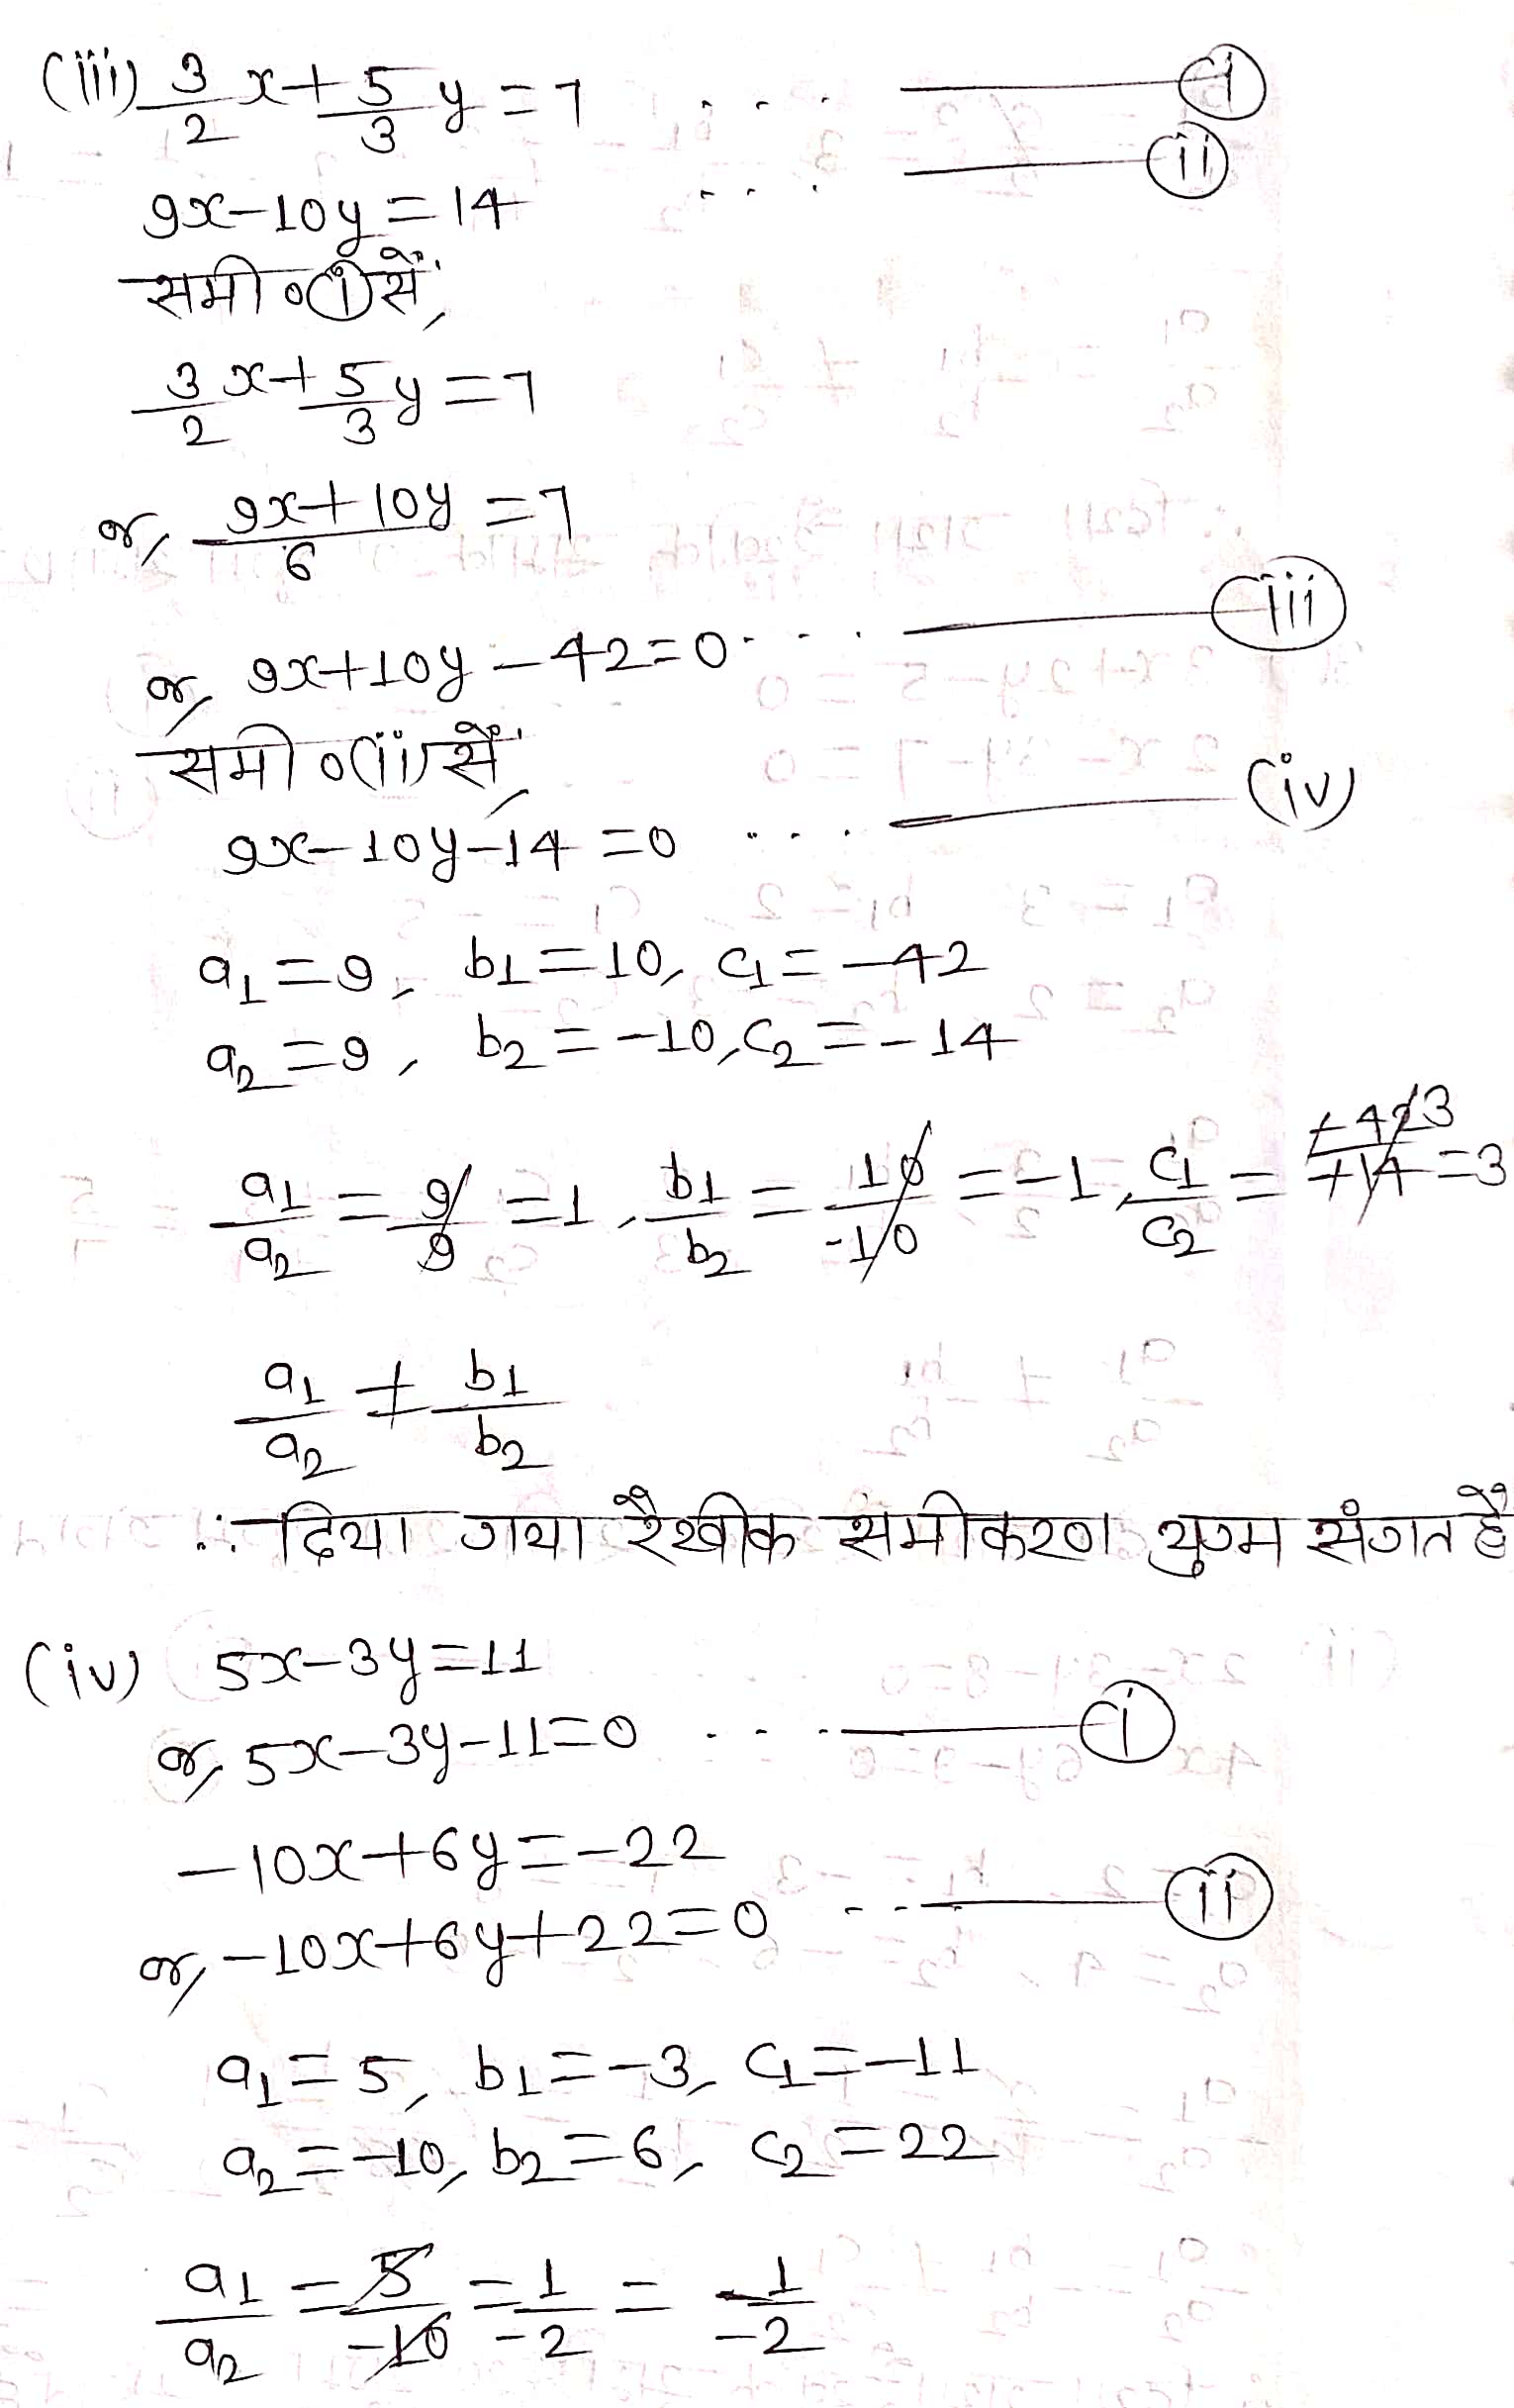 (iii) 3/2 x + 5/3 y = 7 ... —— (i)
9x - 10y = 14 ... —— (ii)
समी० (i) सें,
3/2 x + 5/3 y = 7
or, (9x + 10y)/6 = 7
or, 9x + 10y - 42 = 0 ... —— (iii)
समी० (ii) सें,
9x - 10y - 14 = 0 ... —— (iv)
a₁ = 9, b₁ = 10, c₁ = -42
a₂ = 9, b₂ = -10, c₂ = -14
a₁/a₂ = 9/9 = 1, b₁/b₂ = 10/-10 = -1, c₁/c₂ = -42/-14 3 = 3
a₁/a₂ ≠ b₁/b₂
∴ दिया गया रैखीक समीकरण युग्म संगत है
(iv) 5x - 3y = 11
or, 5x - 3y - 11 = 0 ... —— (i)
-10x + 6y = -22
or, -10x + 6y + 22 = 0 ... —— (ii)
a₁ = 5, b₁ = -3, c₁ = -11
a₂ = -10, b₂ = 6, c₂ = 22
a₁/a₂ = 5/-10 = 1/-2 = -1/-2